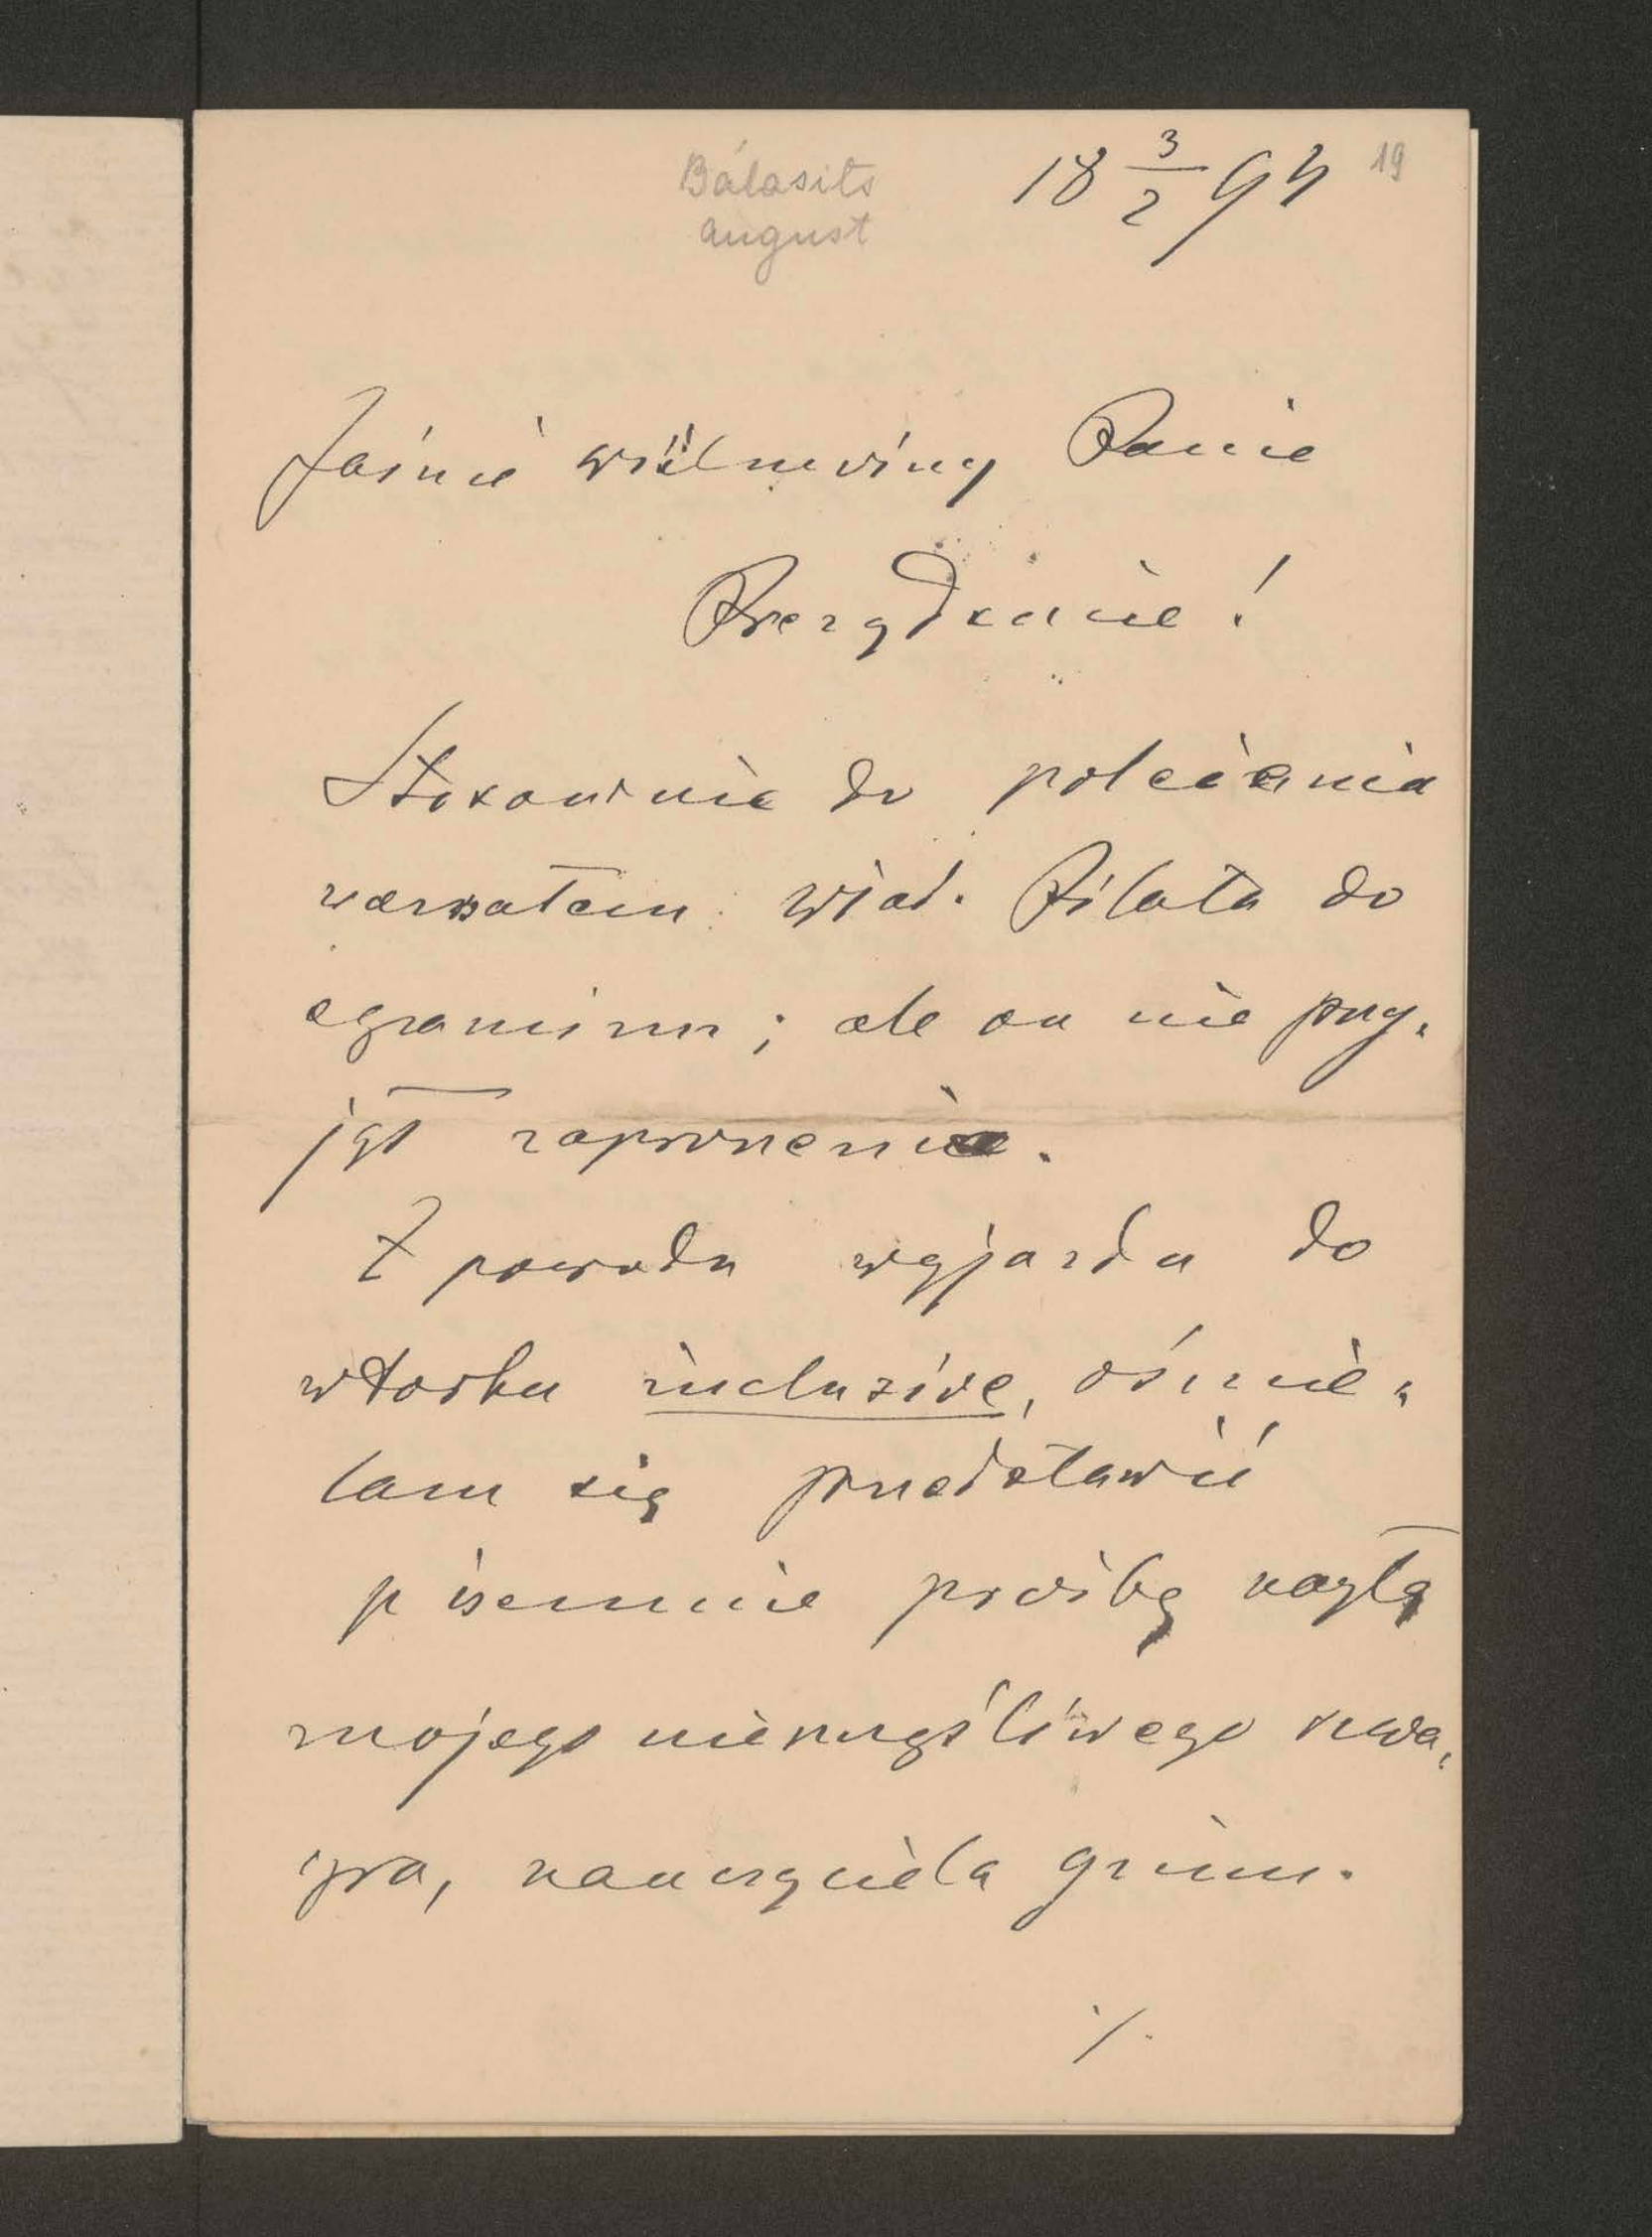 Bálasits
august
18 3/2 94
19
Jaśnie wielmożny Panie
Prezydencie!
Stosownie do polecenia
wezwałem Wład. Piłata do
egzaminu; ale on nie przy-
jął zaproszenia.
Z powodu wyjazdu do
wtorku inclusive, ośmie-
lam się przedstawić
pisemnie prośbę
mojego niemyśliwego szwa-
gra, nauczyciela gimn.
./.